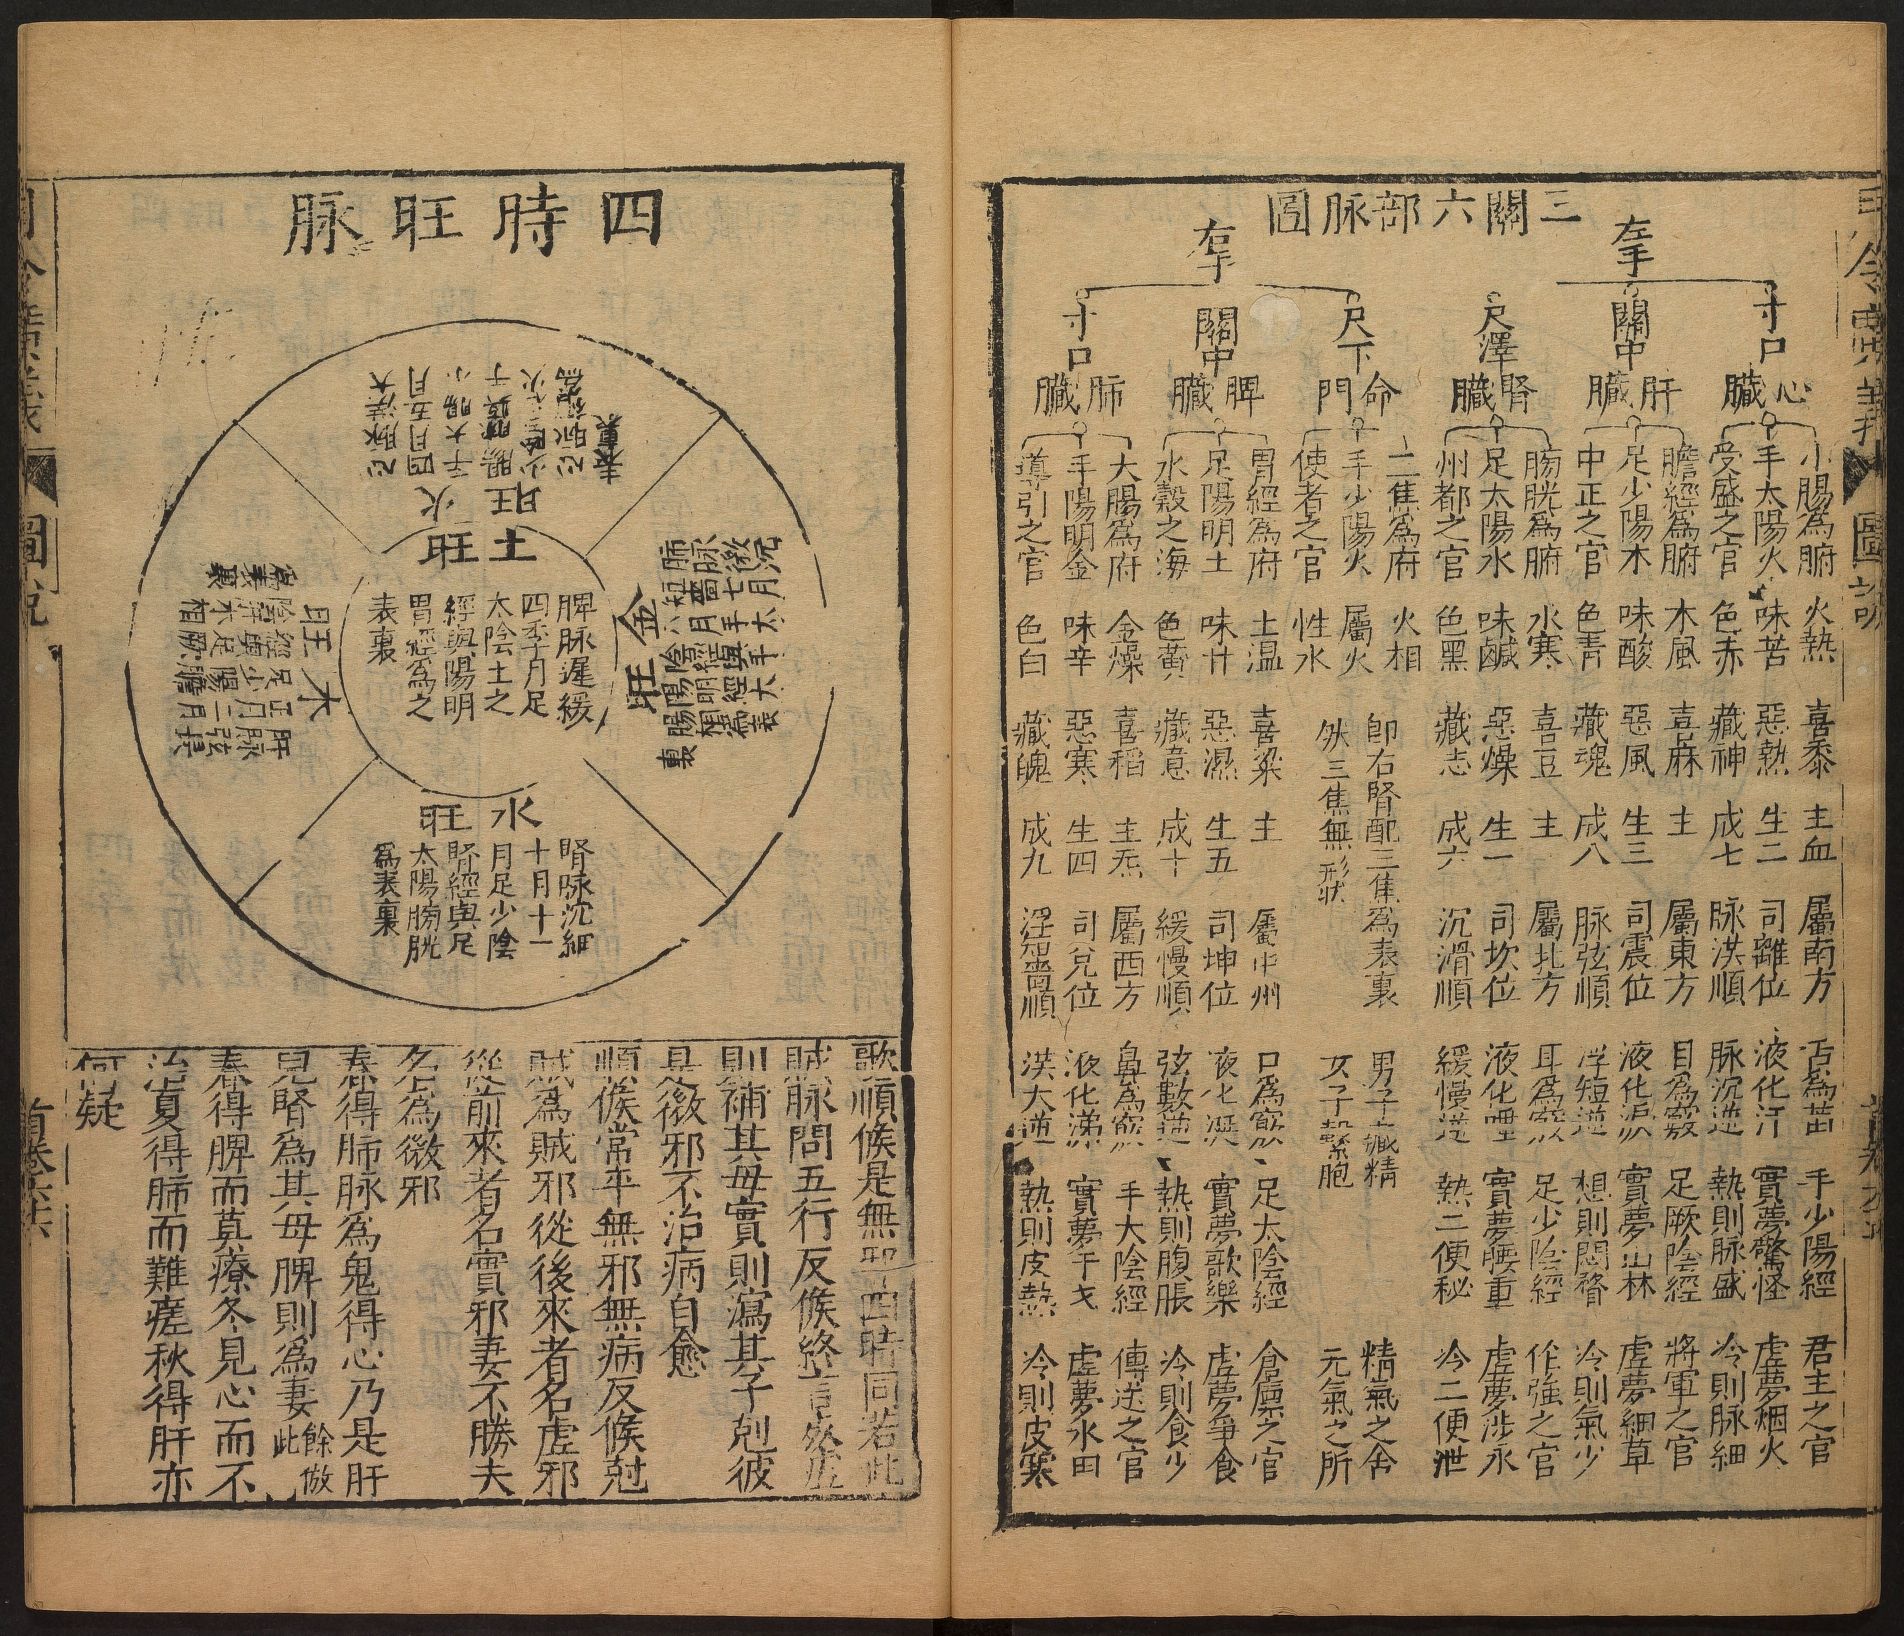 三關六部脉圖
左手
寸口
心臟
小腸為腑 火熱 喜黍 主血 屬南方 舌為苗 手少陽經 君主之官
手太陽火 味苦 惡熱 生二 司離位 液化汗 實夢驚怪 虛夢烟火
受盛之官 色赤 藏神 成七 脉洪順 脉沉逆 熱則脉盛 冷則脉細
關中
肝臟
膽經為腑 木風 喜麻 主 屬東方 目為竅 足厥陰經 將軍之官
足少陽木 味酸 惡風 生三 司震位 液化淚 實夢山林 虛夢細草
中正之官 色青 藏魂 成八 脉弦順 浮短逆 想則悶瞀 冷則氣少
尺澤
腎臟
膀胱為腑 水寒 喜豆 主 屬北方 耳為竅 足少陰經 作強之官
足太陽水 味鹹 惡燥 生一 司坎位 液化唾 實夢腰重 虛夢涉水
州都之官 色黑 藏志 成六 沉滑順 緩慢逆 熱二便秘 冷二便泄
右手
尺下
命門
三焦為府 火相 即右腎配三焦為表裏 男子藏精 精氣之舍
手少陽火 屬火 然三焦無形狀 女子繫胞 元氣之所
使者之官 性水
關中
脾臟
胃經為府 土温 喜粱 主 屬中州 口為竅 足太陰經 倉廩之官
足陽明土 味甘 惡濕 生五 司坤位 液化涎 實夢歌樂 虛夢爭食
水穀之海 色黃 藏意 成十 緩慢順 弦數逆 熱則腹脹 冷則食少
寸口
肺臟
大腸為府 金燥 喜稻 主炁 屬西方 鼻為竅 手太陰經 傳送之官
手陽明金 味辛 惡寒 生四 司兌位 液化涕 實夢干戈 虛夢水田
導引之官 色白 藏魄 成九 浮濇順 洪大逆 熱則皮熱 冷則皮寒
圖說
四時旺脉
火旺
心脉洪大
四月五月
手太腸小
少陰
心脉
表裏
土旺
脾脉遲緩
四季月足
太陰土之
經與陽明
胃經為之
表裏
金旺
肺脉微沉
短濇七月
八月手太
陰經與手
陽明經大
腸相為表
裏
木旺
肝脉弦長
正月二月
足少陽膽
經與足厥
陰肝木相
為表裏
水旺
腎脉沈細
十月十一
月足少陰
腎經與足
太陽膀胱
為表裏
歌順候是無邪四時同若此
賊脉問五行反候終言
則補其母實則瀉其子剋彼
是微邪不治病自愈
順候常平無邪無病反候尅
賊為賊邪從後來者名虛邪
從前來者名實邪妻不勝夫
名為微邪
春得肺脉為鬼得心乃是肝
兒腎為其母脾則為妻餘倣此
春得脾而莫療冬見心而不
治夏得肺而難瘥秋得肝亦
何疑
月令廣義
圖說
首卷